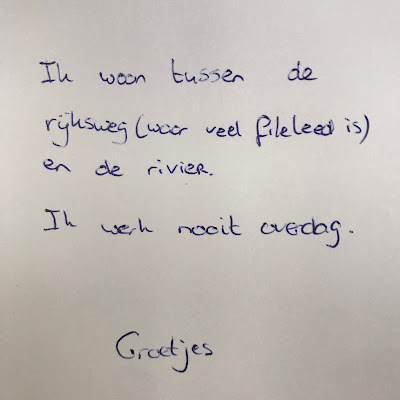 Ik woon tussen de
rijksweg (waar veel fileleed is)
en de rivier.
Ik werk nooit overdag.
Groetjes